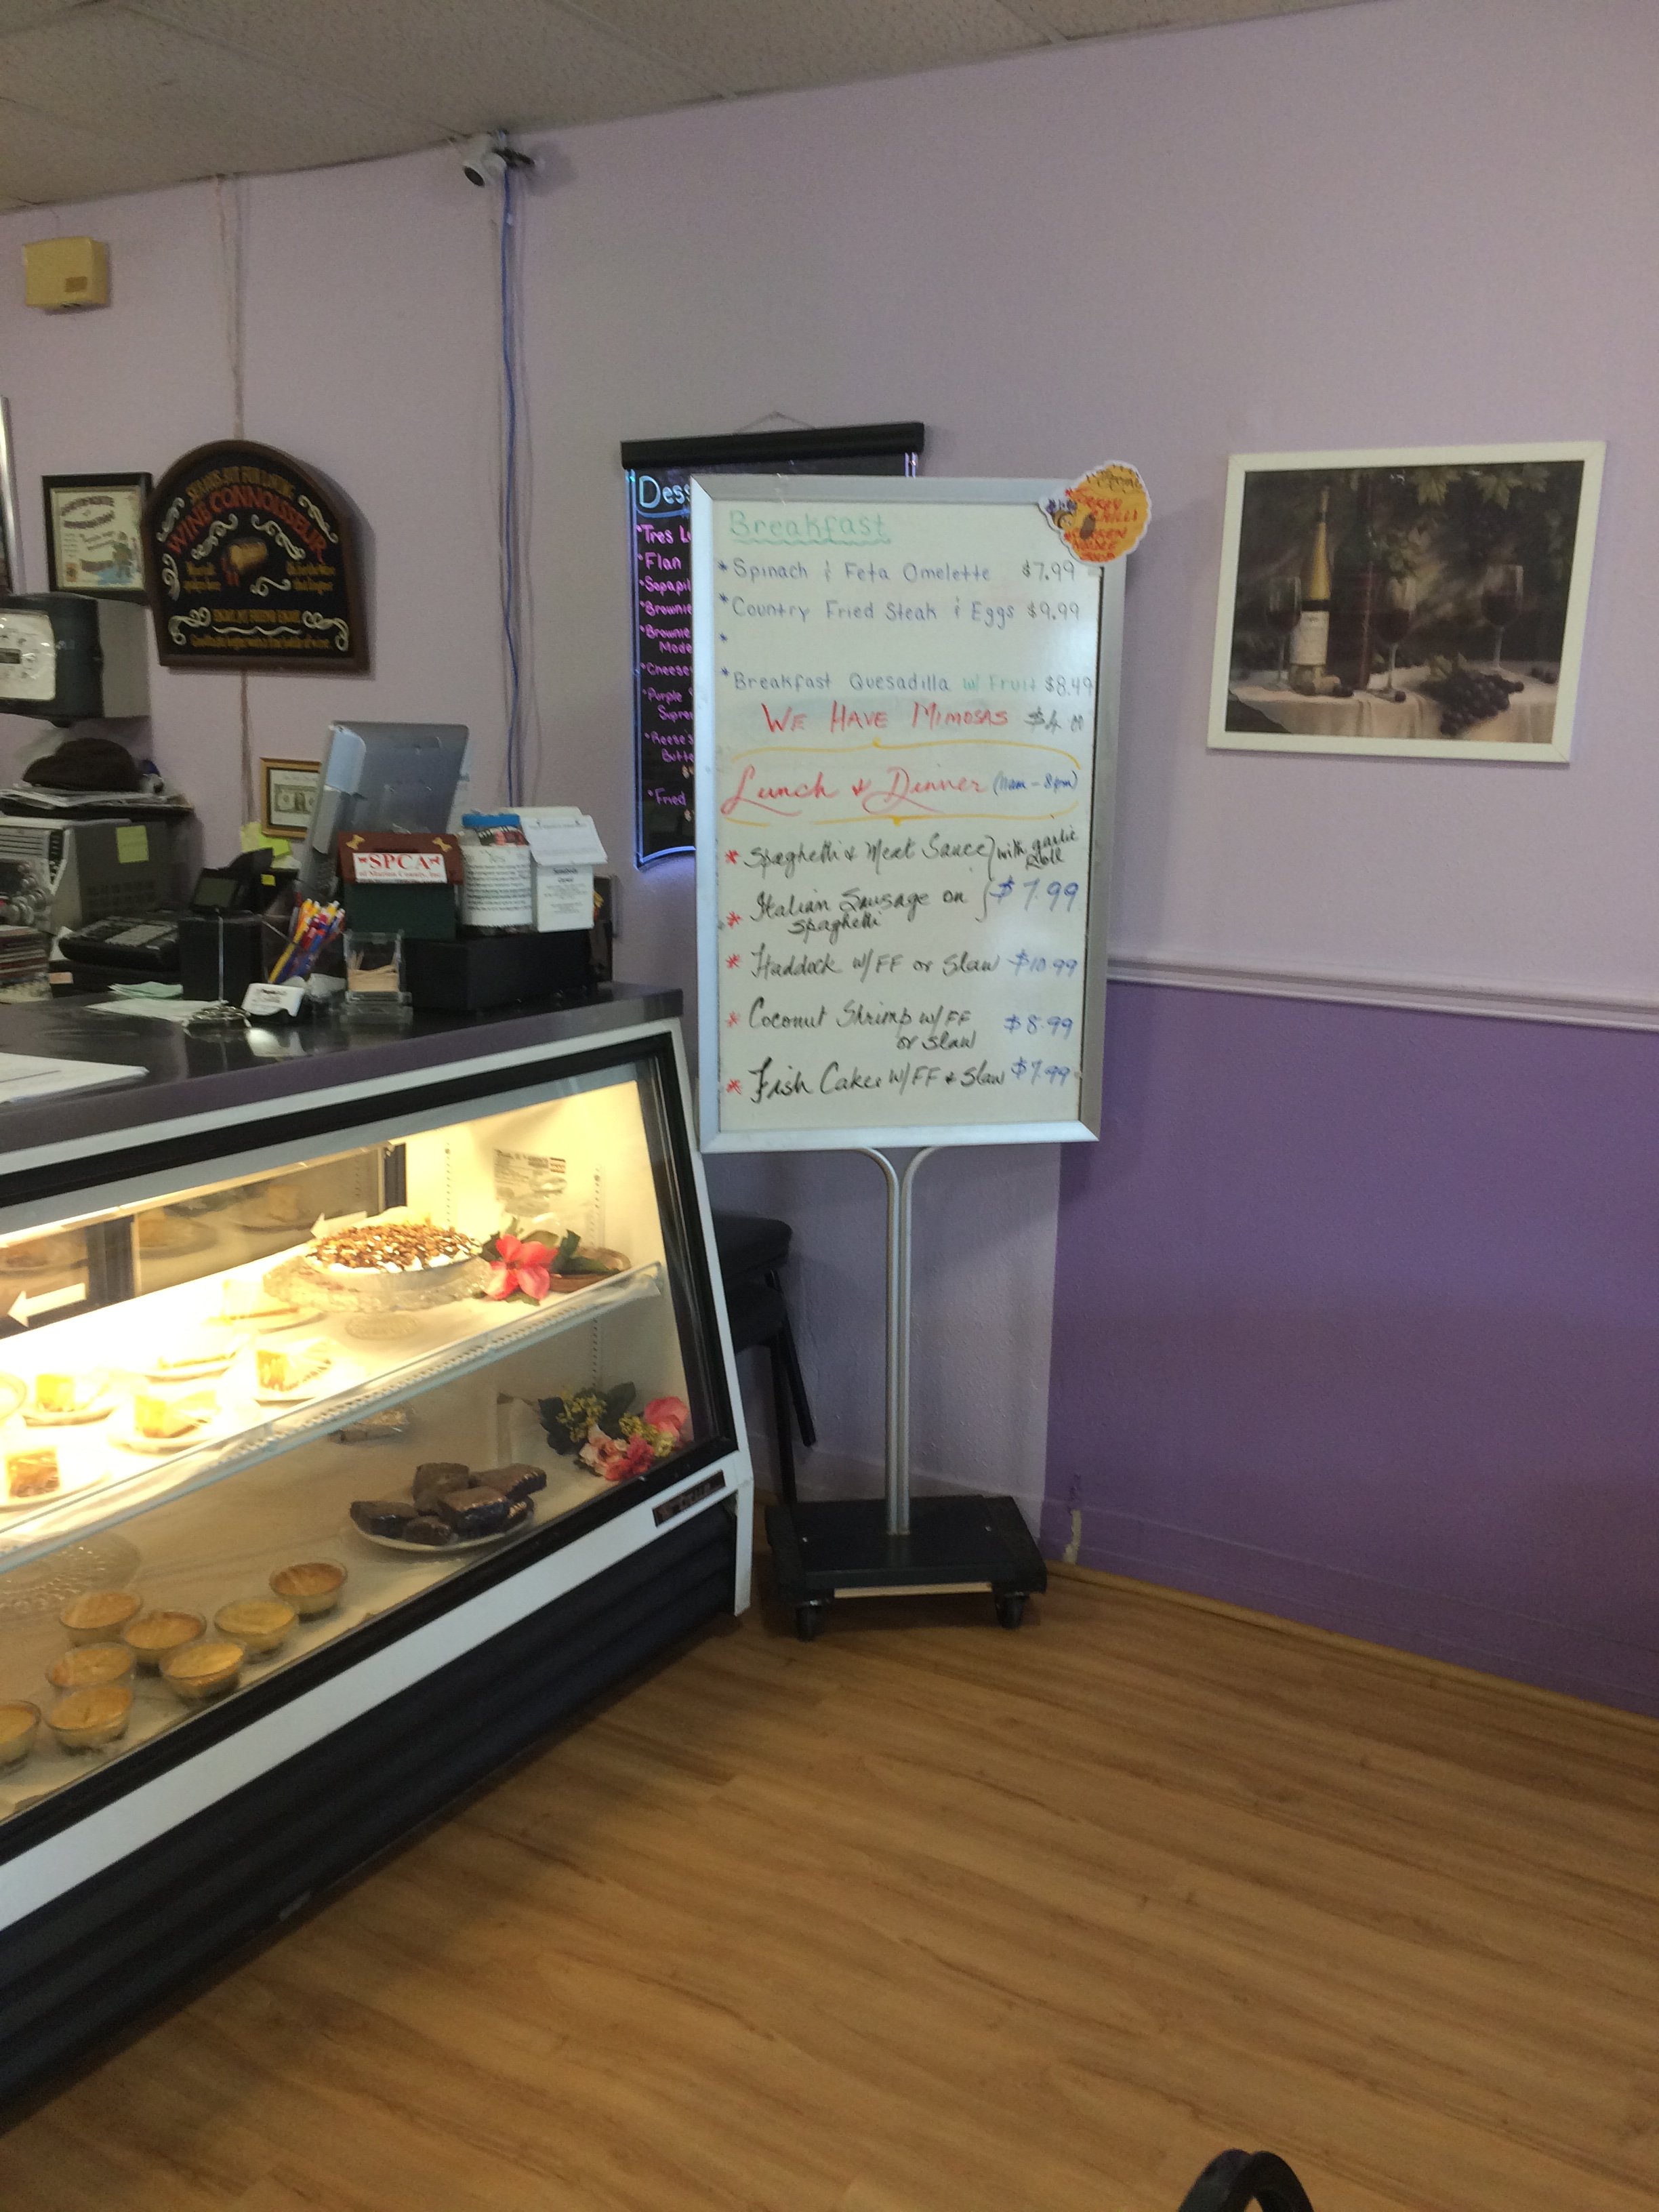 WINE CONNOISSEUR
SPCA
of Marion County, Inc.
Dess
*Tres L
*Flan
*Sopapil
*Brownie
*Brownie
Mode
*Cheese
*Purple
Supre
*Reese's
Butte
*Fried
Breakfast
*Spinach & Feta Omelette $7.99
*Country Fried Steak & Eggs $9.99
*
*Breakfast Quesadilla w/ Fruit $8.49
WE HAVE MIMOSAS $4.00
Lunch & Dinner (11am - 8pm)
* Spaghetti & Meat Sauce } with garlic Roll
* Italian Sausage on } $7.99
spaghetti
* Haddock w/FF or Slaw $10.99
* Coconut Shrimp w/FF $8.99
or slaw
* Fish Cakes w/FF & Slaw $7.99